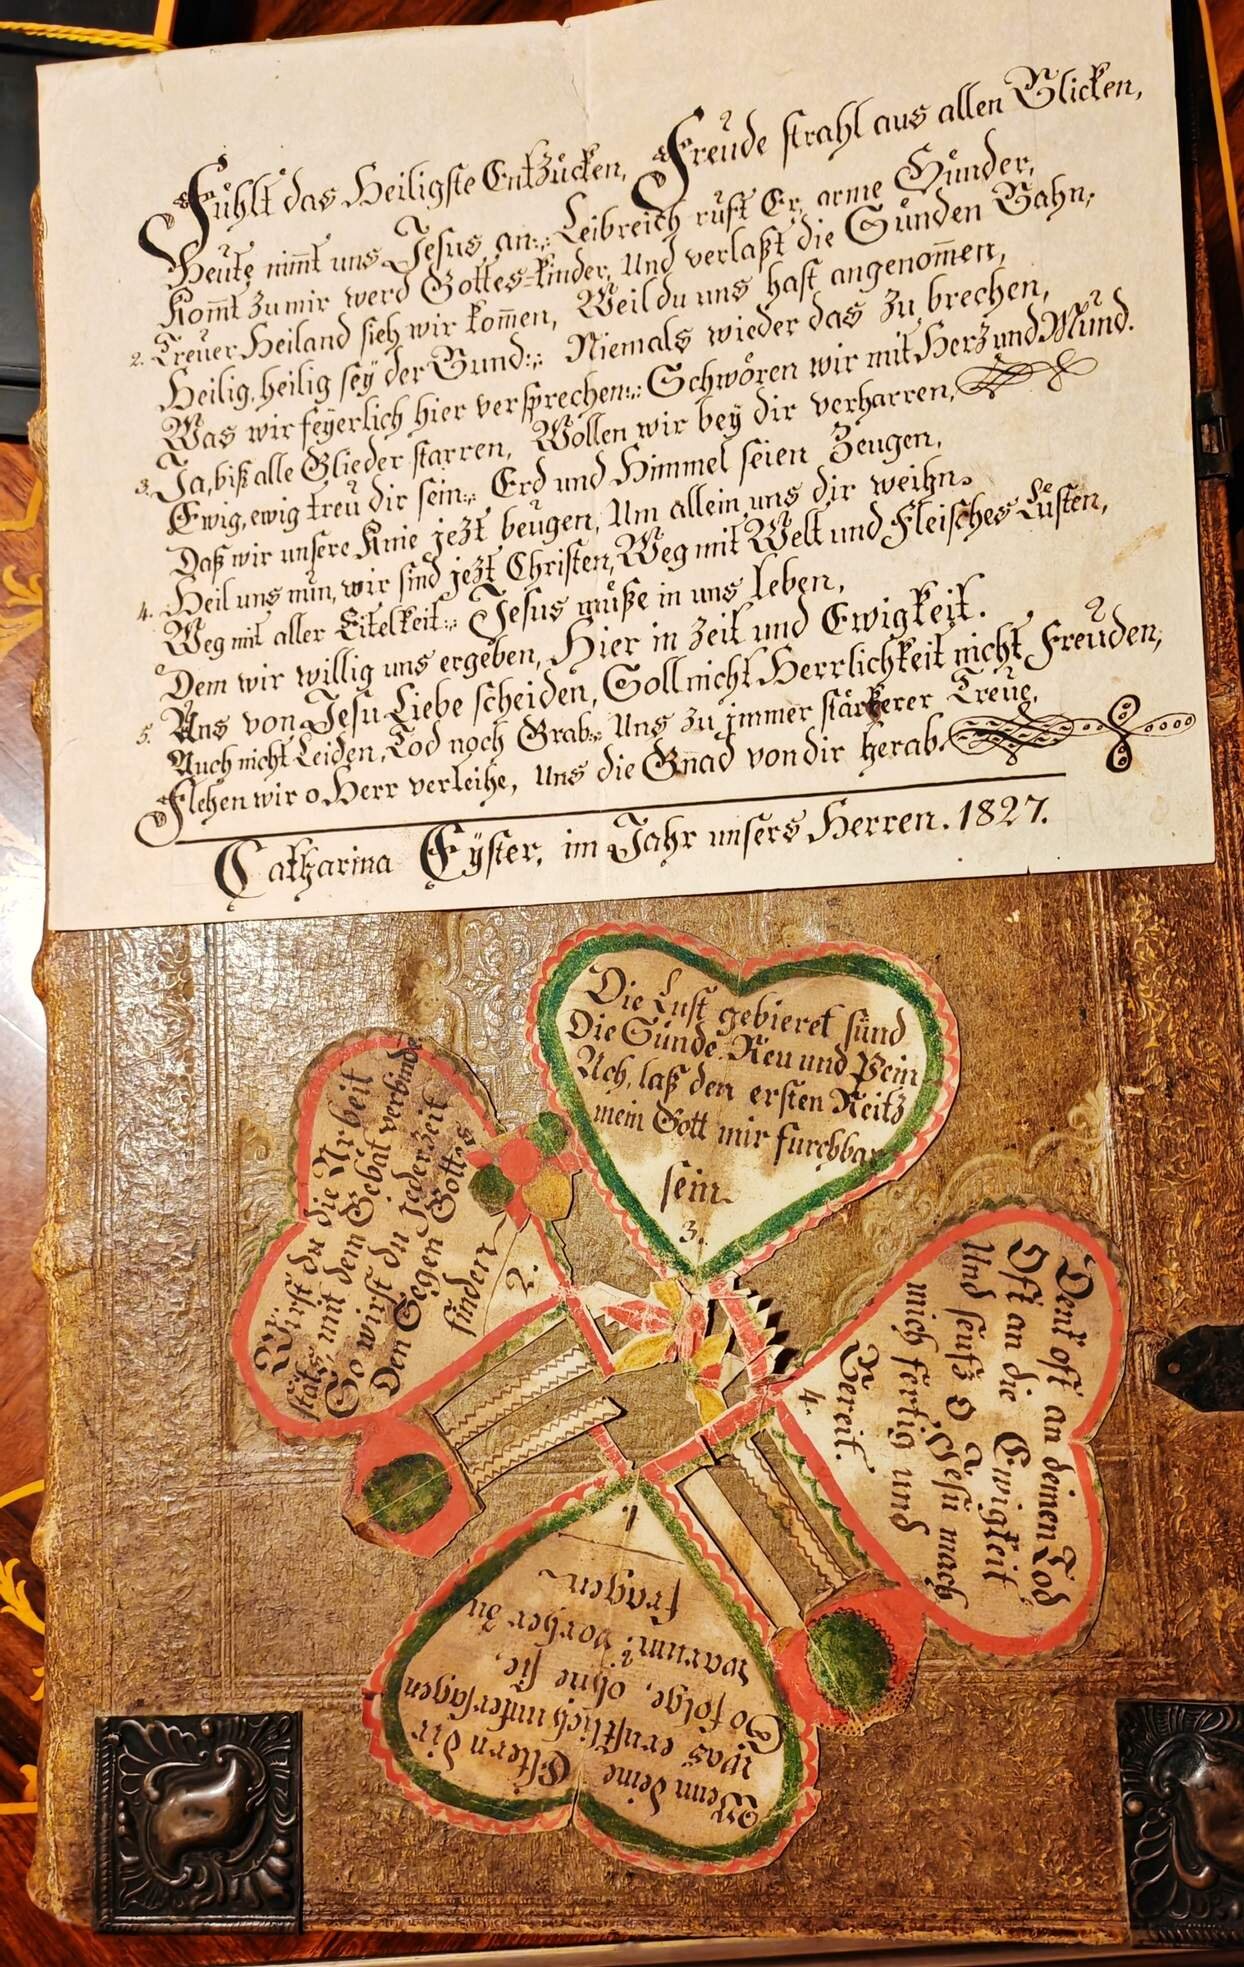 Fühlt das Heiligste Entzücken, Freude strahl aus allen Blicken,
Heute nim̅t uns Jesus an:,: Leibreich ruft Er, arme Sünder,
Kom̅t zu mir werd Gottes=kinder, Und verlaßt die Sünden Bahn,
2. Treuer Heiland sieh wir kom̅en, Weil du uns hast angenom̅en,
Heilig, heilig seÿ der Bund:,: Niemals wieder das zu brechen,
Was wir feÿerlich hier versprechen:,: Schwören wir mit Herz und Mund.
3. Ja, biß alle Glieder starren, Wollen wir beÿ dir verharren,
Ewig, ewig treu dir sein:,: Erd und Himmel seien Zeugen,
Daß wir unsere Knie jezt beugen, Um allein uns dir weihn.
4. Heil uns nun, wir sind jezt Christen, Weg mit Welt und Fleisches Lüsten,
Weg mit aller Eitelkeit:,: Jesus müße in uns leben,
Dem wir willig uns ergeben, Hier in Zeit und Ewigkeit.
5. Uns von Jesu Liebe scheiden, Soll nicht Herrlichkeit nicht Freuden,
Auch nicht Leiden, Tod noch Grab:,: Uns zu jmmer stärkerer Treue,
Flehen wir o Herr verleihe, Uns die Gnad von dir herab.
Catharina Eÿster, im Jahr unsers Herren. 1827.
Die Lust gebieret sünd
Die Sünde Reu und Pein
Ach, laß den ersten Reitz
mein Gott mir furchbar
sein.
3.
Wirst du die Arbeit
stäts, mit dem Gebät verbinde
So wirst du Jederzeit
Den Segen Gottes
finden
2.
Denk oft an deinen Tod
Oft an die Ewigkeit
Und seufz O Jesu mach
mich fertig und
Bereit.
4.
1
Wenn deine Eltern dir
was ernstlich untersagen
So folge, ohne sie,
warum? vorher zu
fragen